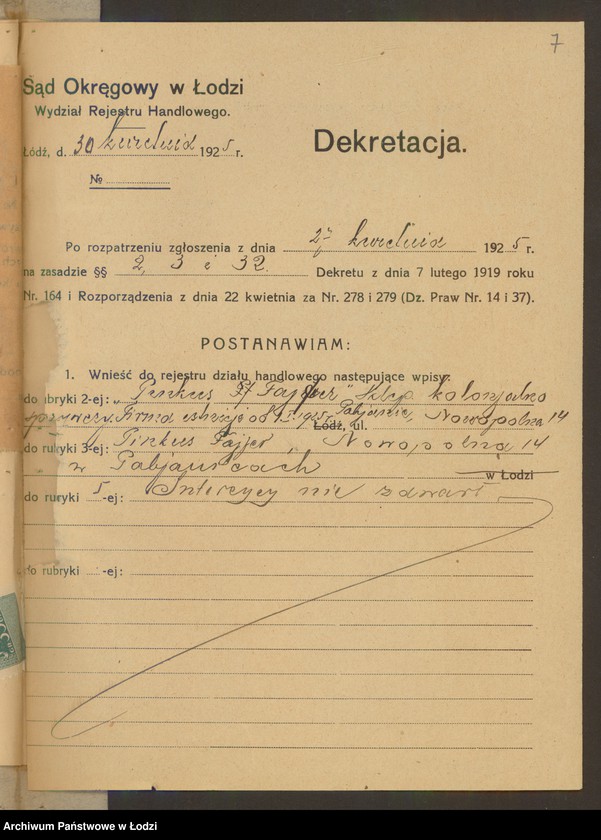 7
Sąd Okręgowy w Łodzi
Wydział Rejestru Handlowego.
Łódź, d. 30 kwietnia 1925 r.
№
Dekretacja.
Po rozpatrzeniu zgłoszenia z dnia 27 kwietnia 1925 r.
na zasadzie §§ 2, 3 i 32. Dekretu z dnia 7 lutego 1919 roku
Nr. 164 i Rozporządzenia z dnia 22 kwietnia za Nr. 278 i 279 (Dz. Praw Nr. 14 i 37).
POSTANAWIAM:
1. Wnieść do rejestru działu handlowego następujące wpisy:
do rubryki 2-ej: „Pinkus Fajfer" Sklep kolonjalno
spożywczy. Firma istnieje od 1925 r. Pabjanice, Nowopolna 14
Łódź, ul.
do rubryki 3-ej: Pinkus Fajfer, Nowopolna 14
w Pabjanicach w Łodzi
do rubryki 5-ej: Intercyzy nie zawarł
do rubryki -ej:
Archiwum Państwowe w Łodzi